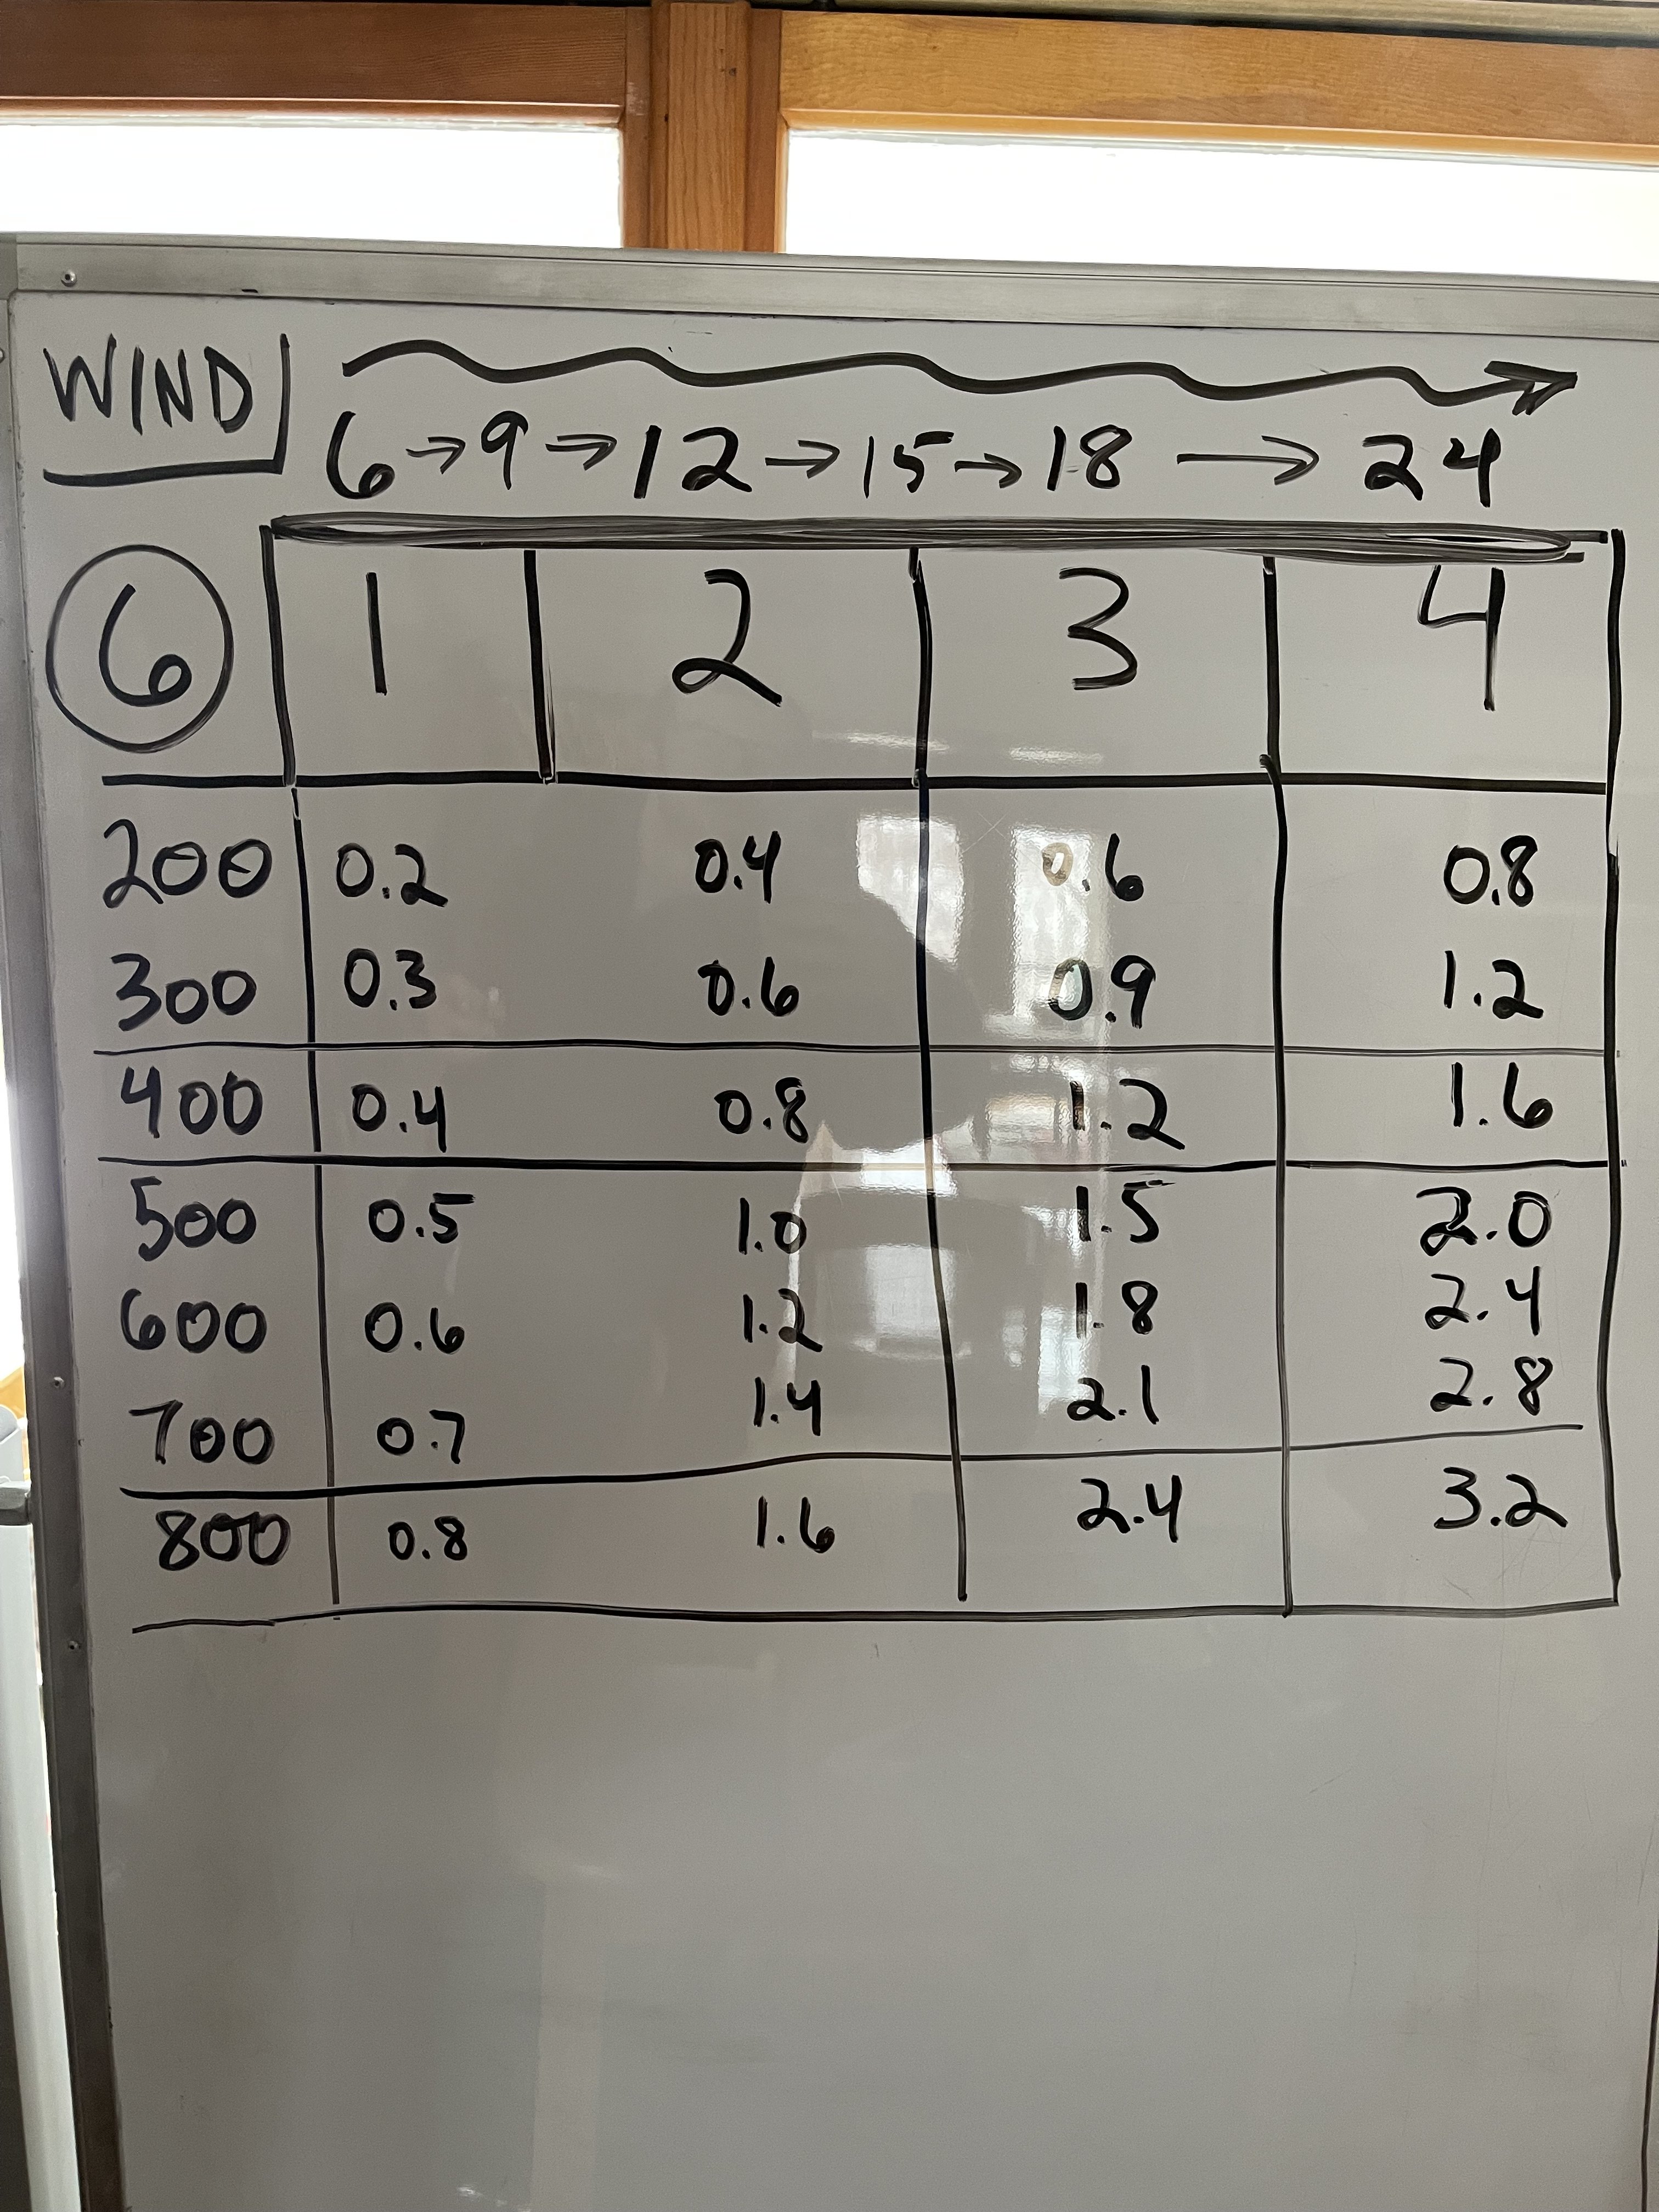 WIND
6→9→12→15→18→24
6 1 2 3 4
200 0.2 0.4 0.6 0.8
300 0.3 0.6 0.9 1.2
400 0.4 0.8 1.2 1.6
500 0.5 1.0 1.5 2.0
600 0.6 1.2 1.8 2.4
700 0.7 1.4 2.1 2.8
800 0.8 1.6 2.4 3.2